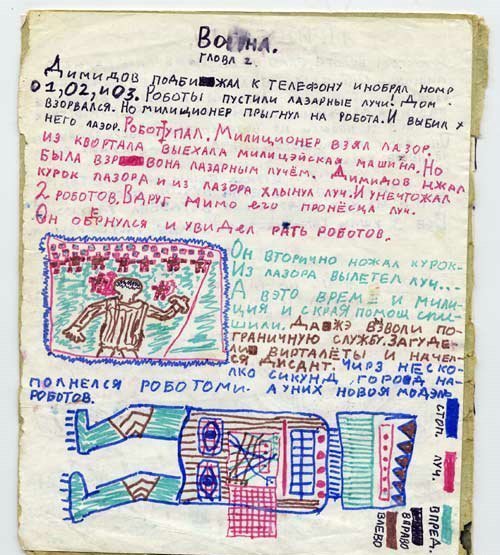 Война.
глова 2.
Димидов подбижал к телефону и нобрал номр
01,02, и 03. Роботы пустили лазарные лучи. Дом
взорвался. Но милиционер прыгнул на робота. И выбил у
него лазор. Робот упал. Милиционер взял лазор.
из квортала выехала милицэйская машина. Но
была взрвона лазарным лучём. Димидов нжал
курок лазора и из лазора хлынул луч. И унечтожал
2 роботов. Вдруг мимо его пронёсца луч.
Он обернулся и увидел рать роботов.
Он вторично ножал курок-
Из лазора вылетел луч...
А вэто время и мили-
ция и скрая помощ спи-
шили. Давжэ взволи по-
граничную службу. Загуде-
ли вирталёты и начел-
ся дисант. Чирз неско-
лко сикунд, город на-
полнелся роботоми. А у них новоя модэль
роботов.
стоп.
луч.
вперд
вправо
влево